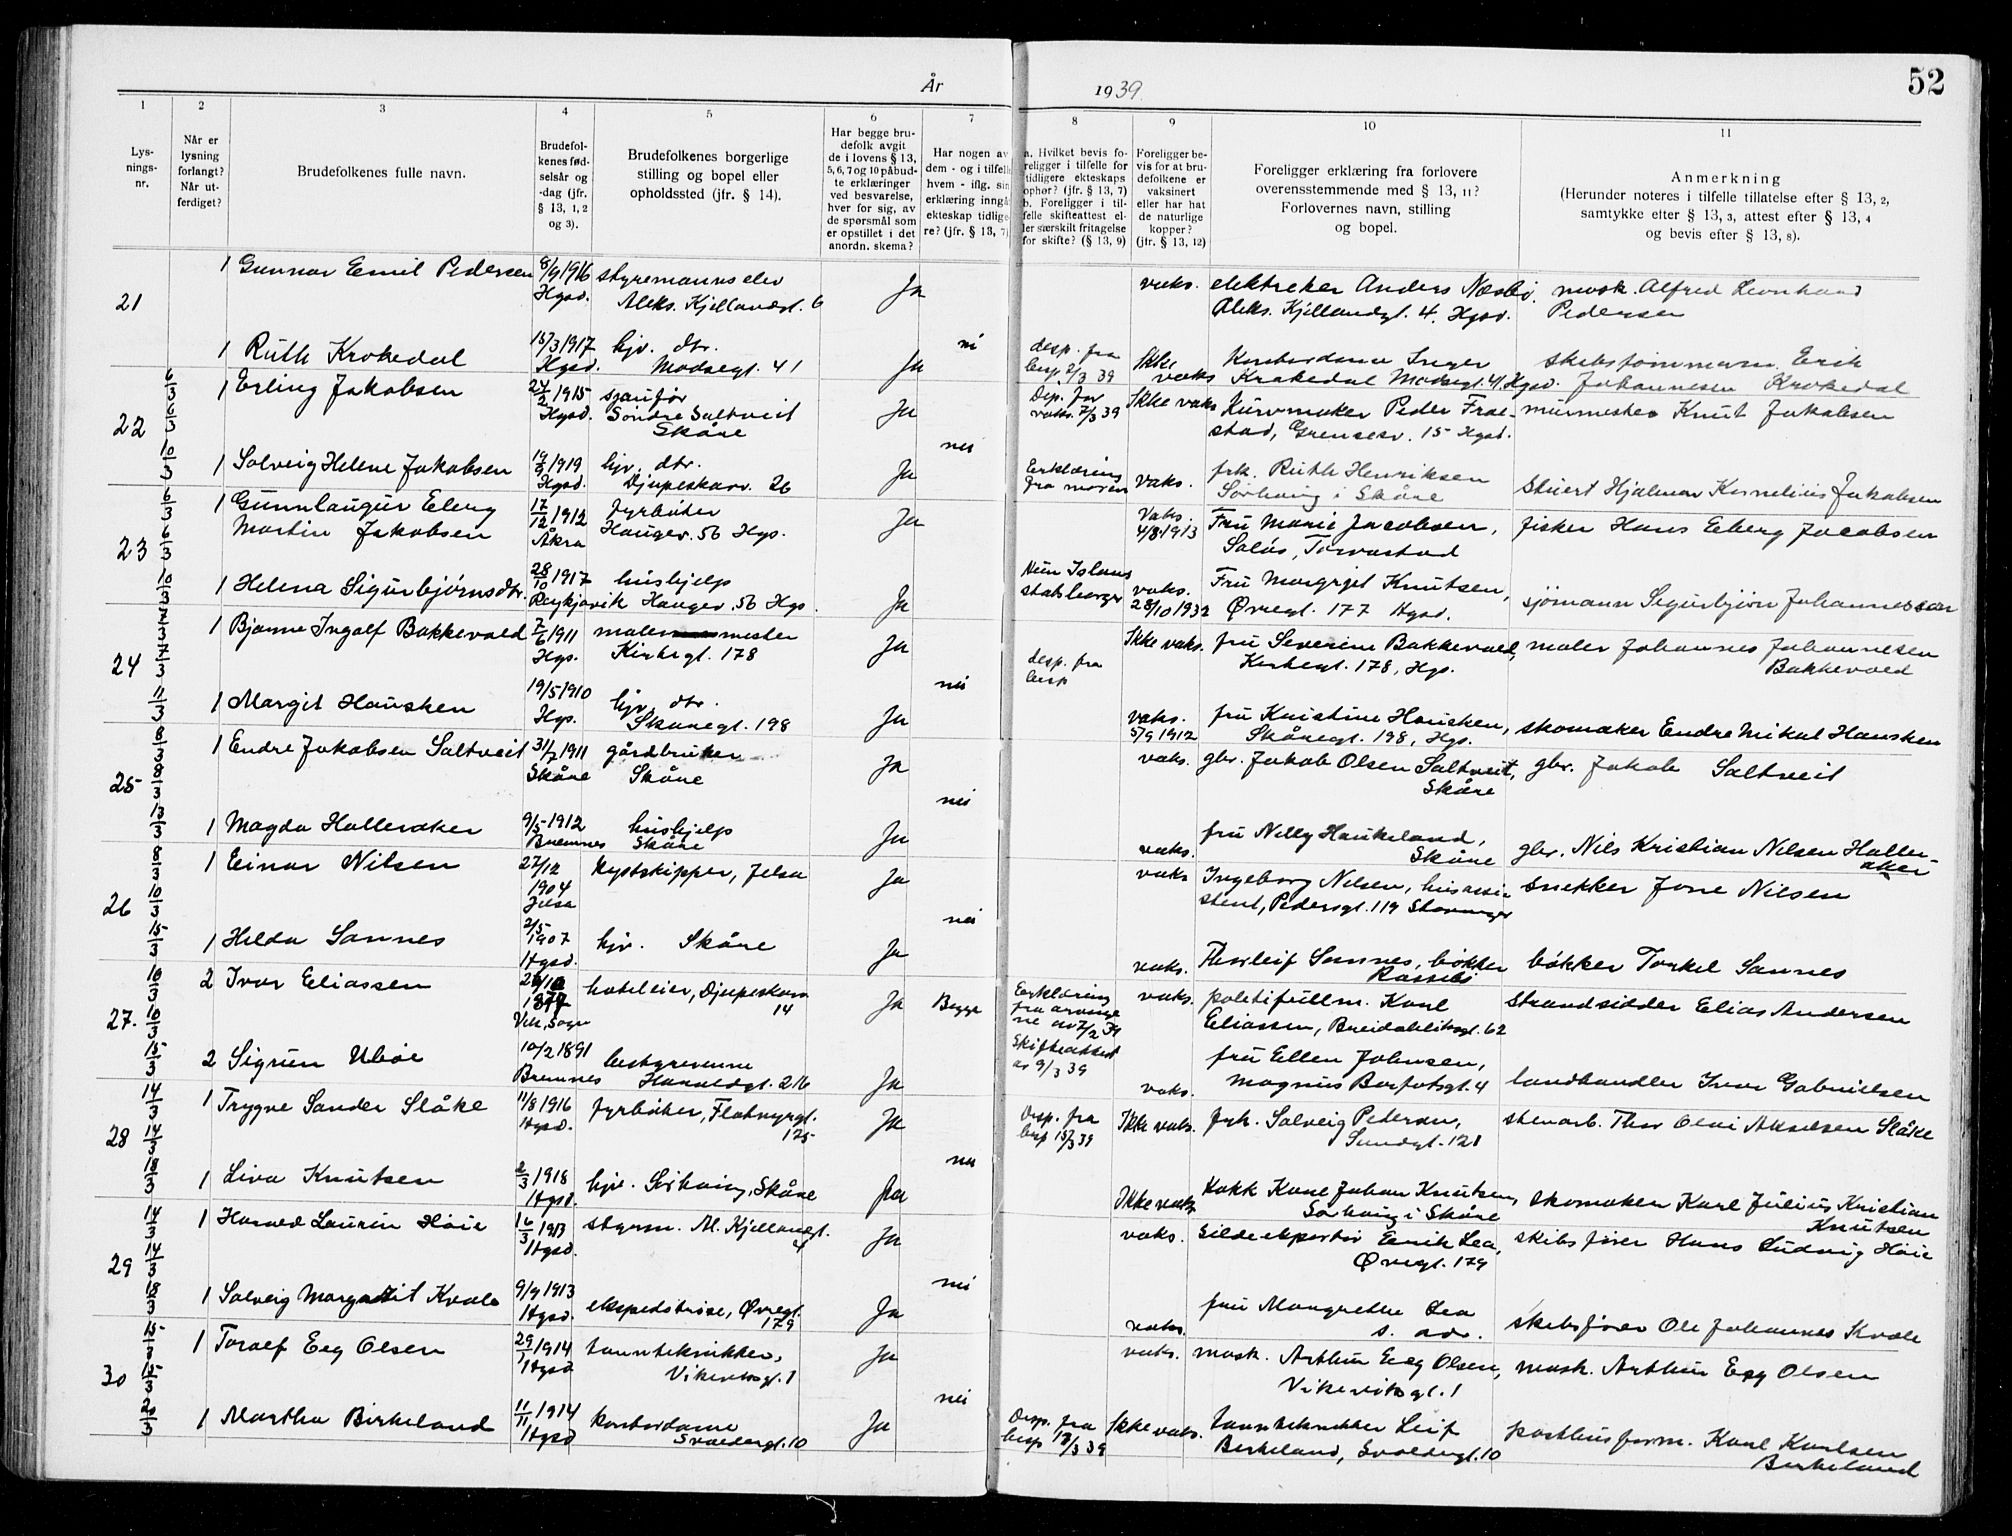 År
1939
52
1
2
3
4
5
6
7
8
9
10
11
Lys-
nings-
nr.
Når er
lysning
forlangt?
Når ut-
ferdiget?
Brudefolkenes fulle navn.
Brudefol-
kenes fød-
selsår og
-dag (jfr.
§ 13, 1, 2
og 3).
Brudefolkenes borgerlige
stilling og bopel eller
opholdssted (jfr. § 14).
Har begge bru-
defolk avgit
de i lovens § 13,
5, 6, 7 og 10 påbud-
te erklæringer
ved besvarelse,
hver for sig, av
de spørsmål som
er opstillet i det
anordn. skema?
Har nogen av
dem - og i tilfelle
hvem - iflg. sin
erklæring inngå
ekteskap tidlige-
re? (jfr. § 13, 7)
a. Hvilket bevis fo-
religger i tilfelle for
tidligere ekteskaps
ophør? (jfr. § 13, 7)
b. Foreligger i til-
felle skifteattest el-
ler særskilt fritagelse
for skifte? (§ 13, 9)
Foreligger be-
vis for at bru-
defolkene er
vaksinert
eller har hat
de naturlige
kopper?
(jfr. § 13, 12)
Foreligger erklæring fra forlovere
overensstemmende med § 13, 11?
Forlovernes navn, stilling
og bopel.
Anmerkning
(Herunder noteres i tilfelle tillatelse efter § 13, 2,
samtykke efter § 13, 3, attest efter § 13, 4
og bevis efter § 13, 8).
21
1 Gunnar Emil Pedersen 8/9 1916 styremannselev Ja vaks. elektriker Anders Næsbø, mask. Alfred Leonhard
Hgsd. Aleks. Kjellandsgt. 6 Aleks. Kjellandgt. 4, Hgsd. Pedersen
1 Ruth Krokedal 15/3 1917 hjv. dtr. Ja nei desp. fra Ikke Kontordame Inger skibstømmerm. Erik
Hgsd. Modsegt. 41 bisp 2/3 39 vaks Krokedal Modsegt. 41, Hgsd. Johannesen Krokedal
22
6/3 1 Erling Jakobsen 24/2 1915 sjaufør Ja Disp. for Ikke vaks Kurvmaker Peder Frae- murmester Knut Jakobsen
6/3 Hgsd. Søndre Saltveit vaks. 7/3 39 stad, Grensev. 15 Hgsd.
Skåre
10/3 1 Solveig Helene Jakobsen 19/9 1919 hjv. dtr. Ja nei Erklæring vaks. frk. Ruth Henriksen stuert Hjalmar Kornelius Jakobsen
Hgsd. Djupeskarv. 26 fra moren Sørhaug i Skåre
23
6/3 1 Gunnlaugur Eberg 17/12 1912 fyrbøter Ja Vaks. Fru Marie Jacobsen, fisker Hans Eberg Jacobsen
6/3 Martin Jakobsen Åkra Haugev. 56 Hgs. 4/8 1913 Saløs, Torvastad
10/3 1 Helena Sigurbjørnsdtr. 28/10 1917 hushjelp Ja vaks. Fru Margrjet Knutsen, sjømann Sigurbjørn Johannesson
Reykjavik Haugev. 56 Hgs. statsborger 28/10 1932 Øvregt. 177 Hgsd.
24
7/3 1 Bjarne Ingolf Bakkevold 7/6 1911 malermester Ja Ikke vaks. fru Severine Bakkevold, maler Johannes Johannesen
7/3 Hgs. Kirkegt. 178 desp. fra bisp Kirkegt. 178, Hgs. Bakkevold
11/3 1 Margit Hausken 19/5 1910 hjv. dtr. Ja nei vaks. fru Kristine Hausken, skomaker Endre Mikal Hausken
Hgs. Skåregt. 198 5/9 1912 Skåregt. 198, Hgs.
25
8/3 1 Endre Jakobsen Saltveit 31/7 1911 gårdbruker Ja vaks. gbr. Jakob Olsen Saltveit, gbr. Jakob Saltveit
8/3 Skåre Skåre Skåre
13/3 1 Magda Halleraker 9/5 1912 hushjelp Ja nei vaks. fru Nelly Haukeland, gbr. Nils Kristian Nilsen Haller-
Bremnes Skåre Skåre aker
26
8/3 1 Einar Nilsen 27/12 Kystskipper, Jelsa Ja vaks Ingeborg Nilsen, husassi- snekker Jone Nilsen
10/3 1904 stent, Pedersgt. 119 Stavanger
Jelsa
15/3 1 Hilda Sannes 2/5 hjv. Skåre Ja nei vaks. Thorleif Sannes, bøkker bøkker Torkel Sannes
1907 Røssebø
Hgsd.
27.
10/3 2 Ivar Eliassen hoteleier, Djupeskarv Ja Begge Erklæring vaks. politifullm. Karl strandsidder Elias Andersen
10/3 14 fra arvinge Eliassen, Breidablikgt. 62
Vik, Sogn ne av 7/2 39
15/3 2 Sigrun Ubøe 10/2 1891 bestyrerinne Ja Skifteattest vaks. fru Ellen Johnsen, landhandler Ivar Gabrielsen
Bremnes Haraldsgt. 216 av 9/3 39 Magnus Barfotsgt. 4
28
14/3 1 Trygve Sander Slåke 11/8 1916 fyrbøter, Flotmyrgt. Ja Disp. fra Ikke vaks. frk. Solveig Pedersen, stenarb. Thor Olai Akselsen Slåke
14/3 Hgsd. 175 bisp 15/3 39 Sundgt. 121
18/3 1 Liva Knutsen 2/3 1918 hjv. Sørhaug, Skåre Ja nei Ikke vaks Kokk Karl Johan Knutsen, skomaker Karl Julius Kristian
Hgsd. Sørhaug i Skåre Knutsen
29
14/3 1 Harald Laurin Høie 16/3 1913 styrm. Al. Kjellandgt. Ja vaks. Sildeeksportør Eirik Lea, skibsfører Hans Ludvig Høie
14/3 Hgsd. 4 Øvregt. 179
18/3 1 Solveig Margrit Kvale 9/9 1913 ekspeditrise, Øvregt. Ja nei vaks. fru Margrethe Lea skibsfører Ole Johannes Kvale
Hgsd. 179 s. adr.
30
15/3 1 Toralf Eeg Olsen 29/1 1914 tanntekniker, Ja vaks. mask. Arthur Eeg Olsen, mask. Arthur Eeg Olsen
15/3 Hgsd Vikeviksgt. 1 Vikeviksgt. 1
20/3 1 Martha Birkeland 11/11 1914 kontordame Ja nei Disp. fra Ikke vaks. tanntekniker Leif posthusform. Karl Karlsen
Hgsd Svoldergt. 10 bisp 18/3 39 Birkeland, Svoldergt. 10 Birkeland